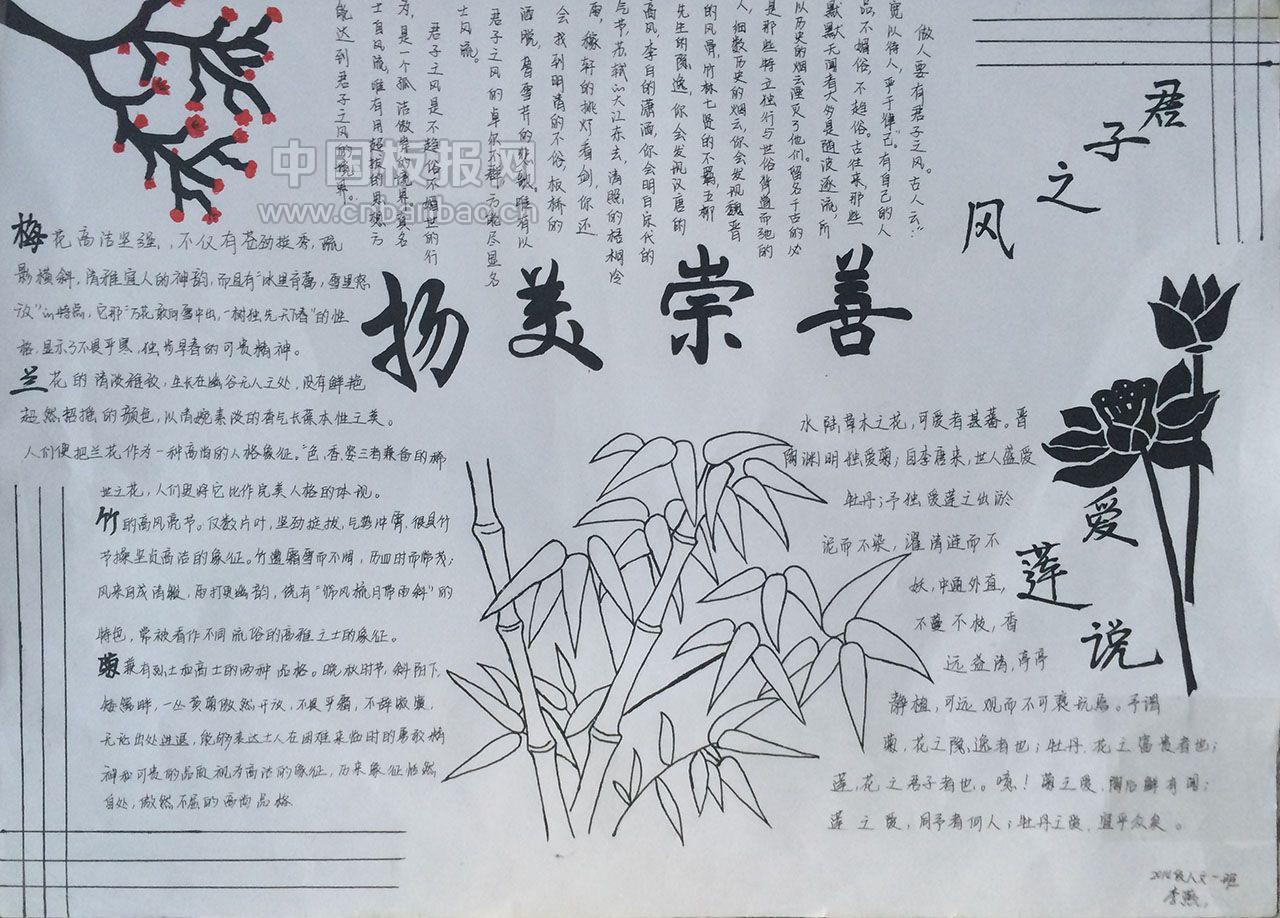 君子之风
做人要有君子之风。古人云：“
宽以待人，严于律己。”有自己的人
品，不媚俗，不趋俗。古往来，那些
默默无闻者大多是随波逐流，所
以历史的烟云湮灭了他们。留名千古的必
是那些特立独行与世俗背道而驰的
人，细数历史的烟云，你会发现魏晋
的风骨，竹林七贤的不羁，五柳
先生的隐逸，你会发现汉唐的
高风，李白的潇洒，你会明白宋代的
气节，苏轼的大江东去，清照的梧桐冷
雨，稼轩的挑灯看剑，你还
会找到明清的不俗，板桥的
洒脱，曹雪芹的
君子之风的卓尔不群方能尽显名
士风流。
君子之风是不趋俗不媚世的行
为，是一个孤洁傲岸的境界。真名
士自风流，唯有用超拔的思想方
能达到君子之风的境界。
中国板报网
www.cnbanbao.cn
扬美崇善
梅花高洁坚强，不仅有苍劲挺秀，疏
影横斜，清雅宜人的神韵，而且有“冰里育蕾，雪里怒
放”的特点，它那“万花敢向雪中出，一树独先天下春”的性
格，显示了不畏严寒，独步早春的可贵精神。
兰花的清淡雅致，生长在幽谷无人之处，没有鲜艳
超然招摇的颜色，以清婉素淡的香气长葆本性之美。
人们便把兰花作为一种高尚的人格象征。“色，香，姿三者兼备的稀
世之花，人们更将它比作完美人格的体现。
竹的高风亮节。仅数片叶，坚劲挺拔，气势冲霄，很具竹
节操坚贞高洁的象征。竹遭霜雪而不凋，历四时而常茂；
风来自成清徽，雨打更幽韵，饶有“饰风梳月带雨斜”的
特色，常被看作不同流俗的高雅之士的象征。
菊兼有烈士和高士的两种品格。晚秋时节，斜阳下，
矮篱畔，一丛黄菊傲然开放，不畏严霜，不辞寂寞，
无论出处进退，能够表达士人在困难来临时的勇敢精
神和可贵的品质视为高洁的象征，历来象征恬然
自处，傲然不屈的高尚品格
爱莲说
水陆草木之花，可爱者甚蕃。晋
陶渊明独爱菊；自李唐来，世人盛爱
牡丹；予独爱莲之出淤
泥而不染，濯清涟而不
妖，中通外直，
不蔓不枝，香
远益清，亭亭
静植，可远观而不可亵玩焉。予谓
菊，花之隐逸者也；牡丹，花之富贵者也；
莲，花之君子者也。噫！菊之爱，陶后鲜有闻；
莲之爱，同予者何人；牡丹之爱，宜乎众矣。
级人文一班
李燕